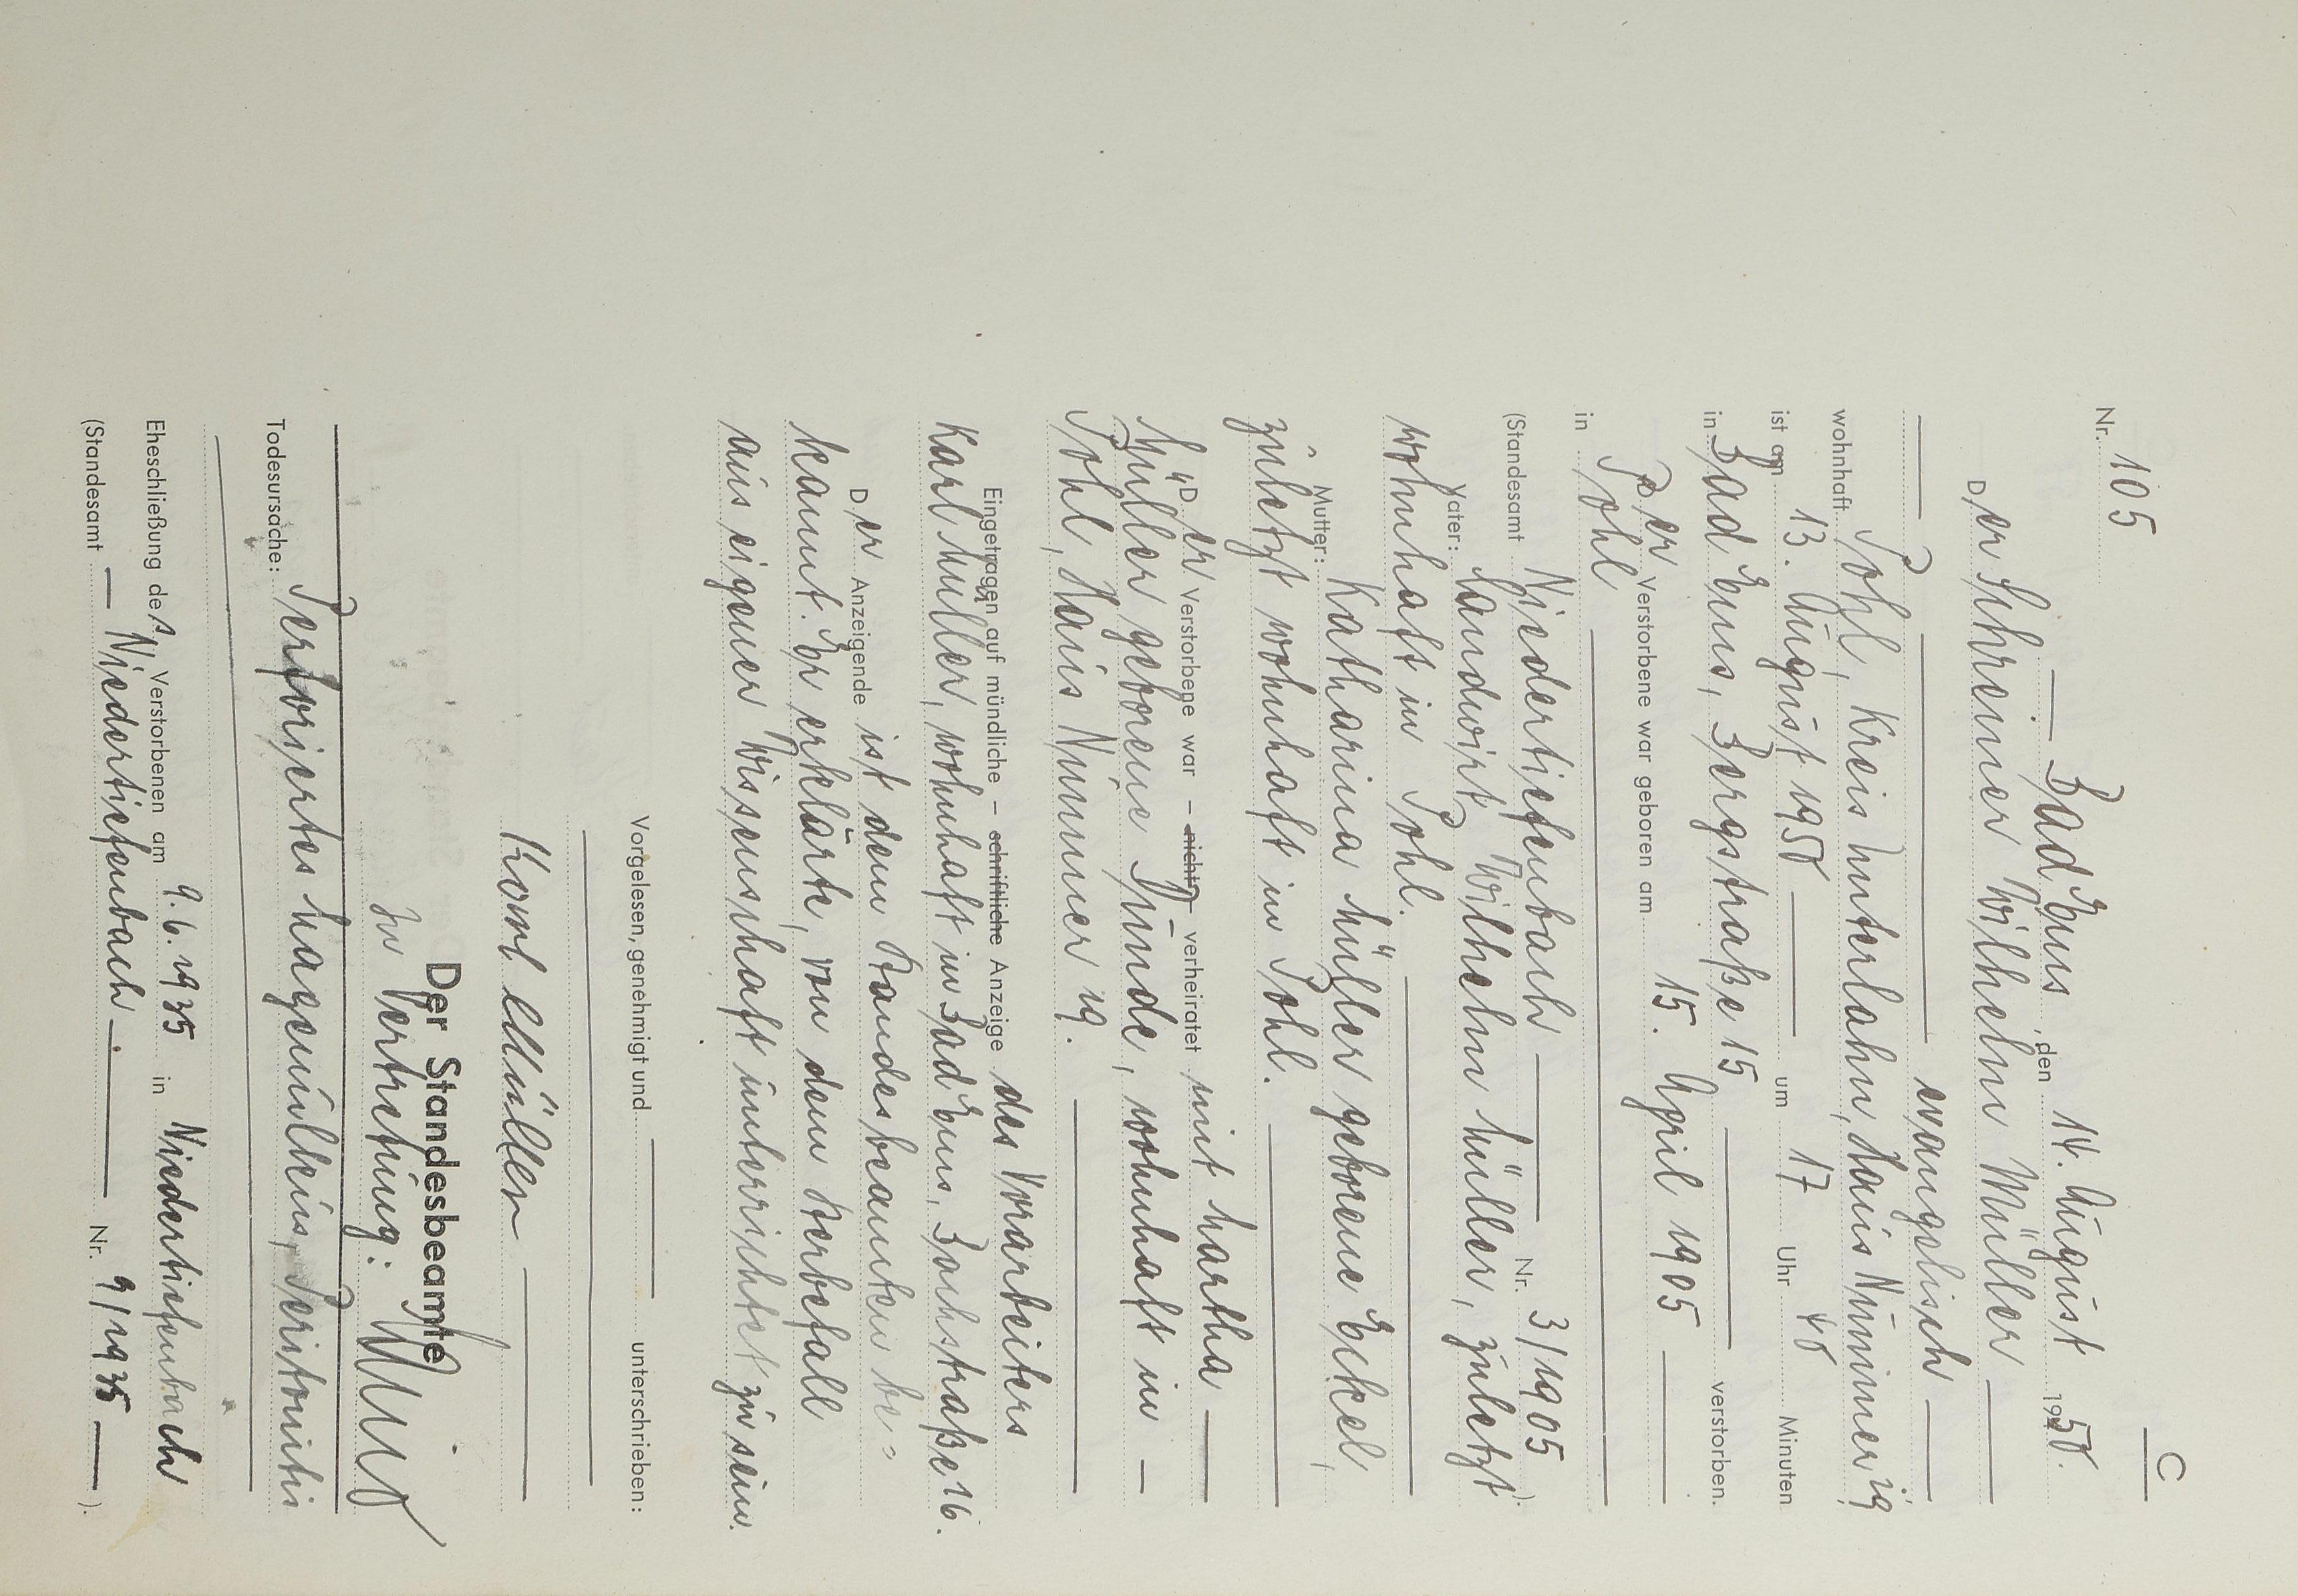 C
Nr. 105
— Bad Ems, den 14. August 1950.
Der Schreiner Wilhelm Müller —
— evangelisch —
wohnhaft Pohl, Kreis Unterlahn, Haus Nummer 29
ist am 13. August 1950 — um 17 Uhr 40 Minuten
in Bad Ems, Bergstraße 15 — verstorben.
Der Verstorbene war geboren am 15. April 1905 —
in Pohl —
(Standesamt Niedertiefenbach — Nr. 3/1905 ).
Vater: Landwirt Wilhelm Müller, zuletzt
wohnhaft in Pohl. —
Mutter: Katharina Müller geborene Eckel,
zuletzt wohnhaft in Pohl. —
Der Verstorbene war – nicht – verheiratet mit Martha —
Müller geborene Dünde, wohnhaft in —
Pohl, Haus Nummer 29. —
Eingetragen auf mündliche – schriftliche Anzeige des Vorarbeiters
Karl Müller, wohnhaft in Bad Ems, Bachstraße 16.
Der Anzeigende ist dem Standesbeamten be=
kannt. Er erklärte, von dem Sterbefall
aus eigner Wissenschaft unterrichtet zu sein.
Vorgelesen, genehmigt und — unterschrieben:
Karl Müller —
Der Standesbeamte
In Vertretung:
Todesursache: Perforiertes Magenulkus, Peritonitis
Eheschließung des Verstorbenen am 9.6.1935 in Niedertiefenbach
(Standesamt — Niedertiefenbach —. Nr. 9/1935 — ).